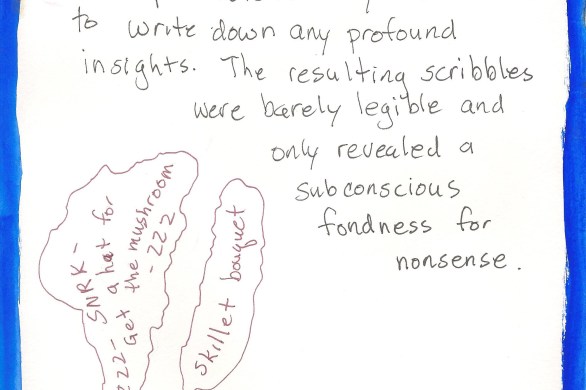 to write down any profound
insights. The resulting scribbles
were barely legible and
only revealed a
subconscious
fondness for
nonsense.
ZZZ- SNRK-
a hat for
Get the mushroom
-ZZZ
Skillet bouquet